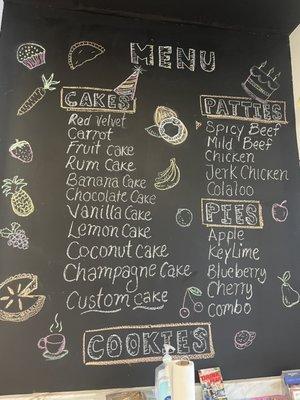 MENU
CAKES
Red Velvet
Carrot
Fruit Cake
Rum Cake
Banana Cake
Chocolate Cake
Vanilla Cake
Lemon Cake
Coconut Cake
Champagne Cake
Custom cake
PATTIES
Spicy Beef
Mild Beef
Chicken
Jerk Chicken
Colaloo
PIES
Apple
Key Lime
Blueberry
Cherry
Combo
COOKIES